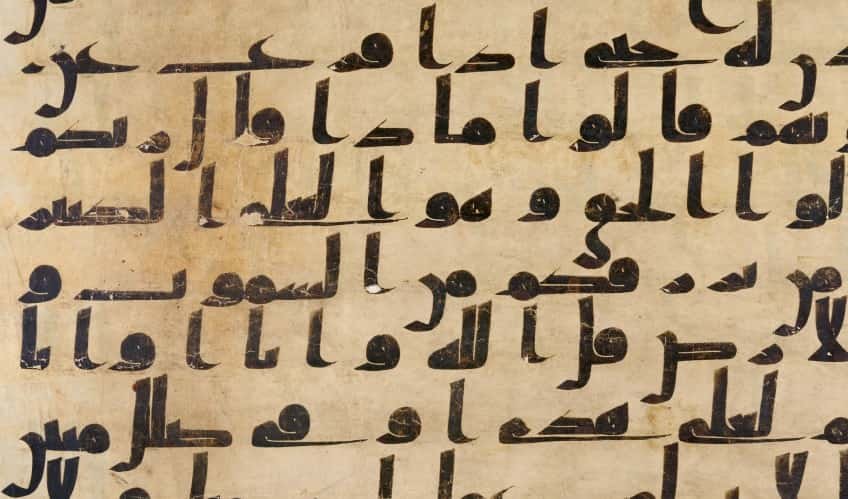 له حتى اذا فزع عن
قالوا ماذا قال ربكم
لوا الحق وهو العلى الكبير
من يرزقكم من السموت و
الارض قل الله وانا او ايا
لعلى هدى او فى ضلل مبين